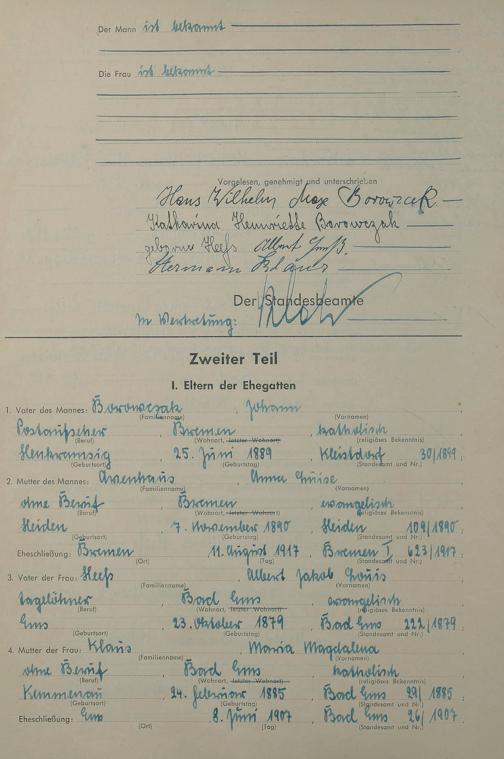 Der Mann ist bekannt
Die Frau ist bekannt
Vorgelesen, genehmigt und unterschrieben
Hans Wilhelm Max Borowczak
Katharina Henriette Borowczak
geborne Heeß Albert
Hermann Klaus
Der Standesbeamte
In Vertretung:
Zweiter Teil
I. Eltern der Ehegatten
1. Vater des Mannes: Borowczak, Johann
(Familienname) (Vornamen)
Postaufseher, Bremen, katholisch
(Beruf) (Wohnort, letzter Wohnort) (religiöses Bekenntnis)
25. Juni 1889, Kleistdorf 30/1899
(Geburtsort) (Geburtstag) (Standesamt und Nr.)
2. Mutter des Mannes: Anna Luise
(Familienname) (Vornamen)
ohne Beruf, Bremen, evangelisch
(Beruf) (Wohnort, letzter Wohnort) (religiöses Bekenntnis)
Heiden, 7. November 1890, Heiden 109/1890
(Geburtsort) (Geburtstag) (Standesamt und Nr.)
Eheschließung: Bremen, 11. August 1917, Bremen I 623/1917
(Ort) (Tag) (Standesamt und Nr.)
3. Vater der Frau: Heeß, Albert Jakob Louis
(Familienname) (Vornamen)
Tagelöhner, Bad Ems, evangelisch
(Beruf) (Wohnort, letzter Wohnort) (religiöses Bekenntnis)
Ems, 23. Oktober 1879, Bad Ems 222/1879
(Geburtsort) (Geburtstag) (Standesamt und Nr.)
4. Mutter der Frau: Klaus, Maria Magdalena
(Familienname) (Vornamen)
ohne Beruf, Bad Ems, katholisch
(Beruf) (Wohnort, letzter Wohnort) (religiöses Bekenntnis)
Kemmenau, 24. Februar 1885, Bad Ems 29/1885
(Geburtsort) (Geburtstag) (Standesamt und Nr.)
Eheschließung: Ems, 8. Juni 1907, Bad Ems 26/1907
(Ort) (Tag) (Standesamt und Nr.)